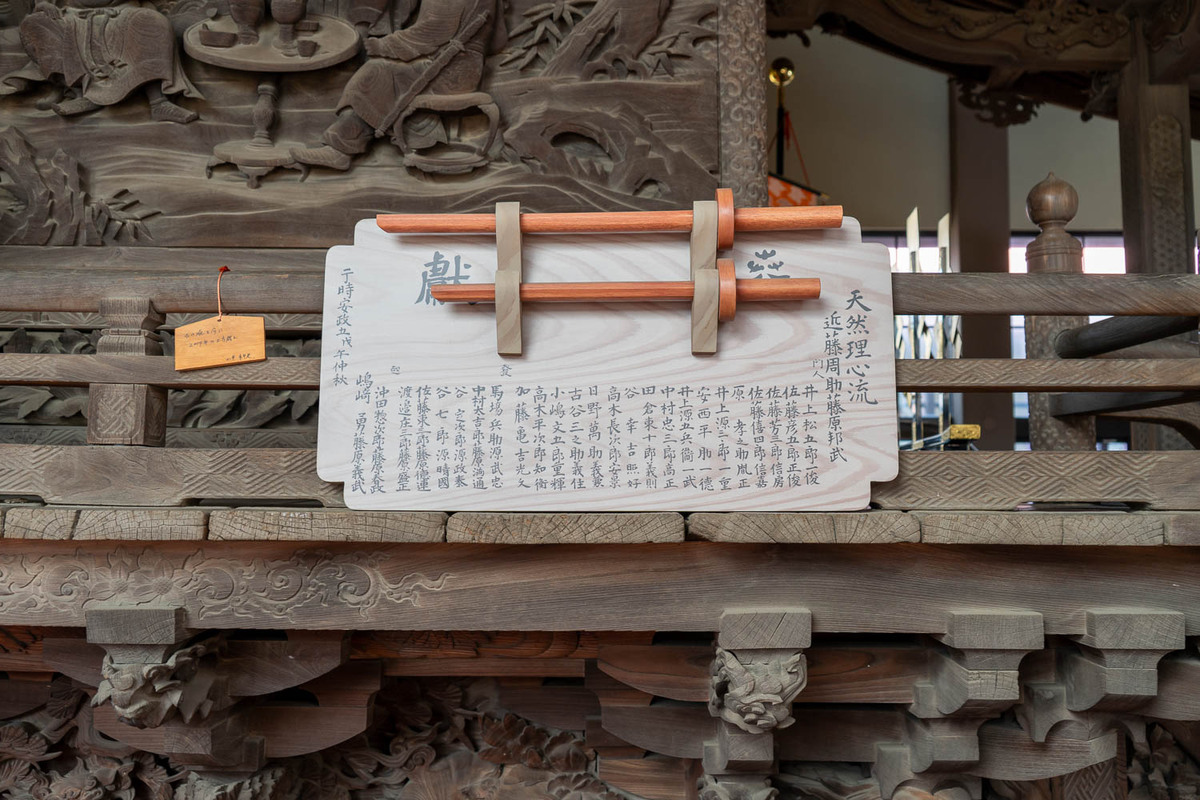 獻
天然理心流
近藤周助藤原邦武
門人
井上松五郎一俊
佐藤彦五郎正俊
佐藤芳三郎信房
佐藤僖四郎信嘉
井上源三郎一重
原 孝之助胤正
安西平助一德
井上源五兵衞一武
中村忠三郎高正
田倉東十郎義則
谷 幸吉照好
高木長次郎安景
日野萬助義寛
古谷三之助義住
小嶋文五郎重輝
高木平次郎知衛
加藤亀吉光久
發
馬場兵助源武忠
中村太吉郎藤原満通
谷 定次郎源政泰
谷 七郎源晴國
佐藤東三郎藤原徳運
渡邉庄三郎藤原盛正
沖田惣次郎藤原春政
嶋﨑 勇藤原義武
于時安政五戊午仲秋